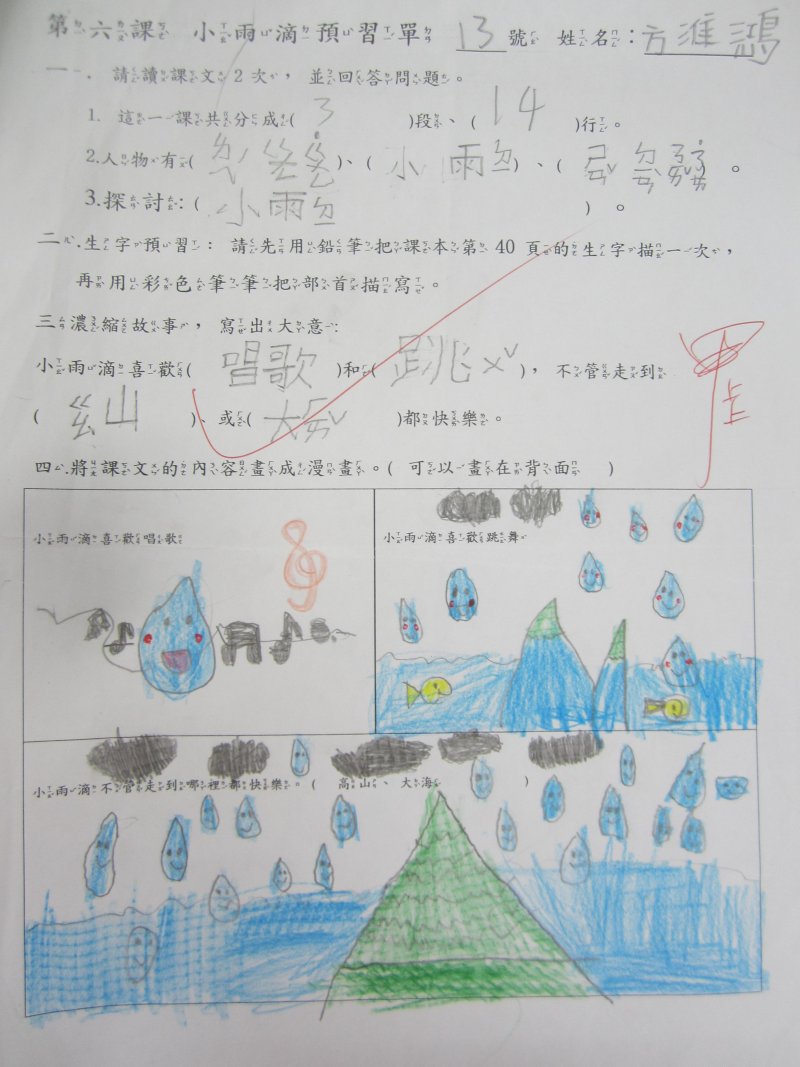 第六課 小雨滴預習單 13號 姓名:方進鴻
一. 請讀課文2次，並回答問題。
1. 這一課共分成( 3 )段、( 14 )行。
2.人物有( )、( 小雨ㄉㄧ )、( )。
3.探討:( 小雨ㄉㄧ )。
二.生字預習: 請先用鉛筆把課本第40頁的生字描一次，
再用彩色筆筆把部首描寫。
三濃縮故事，寫出大意:
小雨滴喜歡( 唱歌 )和( 跳ㄨˇ )，不管走到
( ㄍㄠ山 )、或( 大ㄏㄞˇ )都快樂。
四.將課文的內容畫成漫畫。( 可以畫在背面 )
小雨滴喜歡唱歌
小雨滴喜歡跳舞
小雨滴不管走到哪裡都快樂。( 高山、大海 )